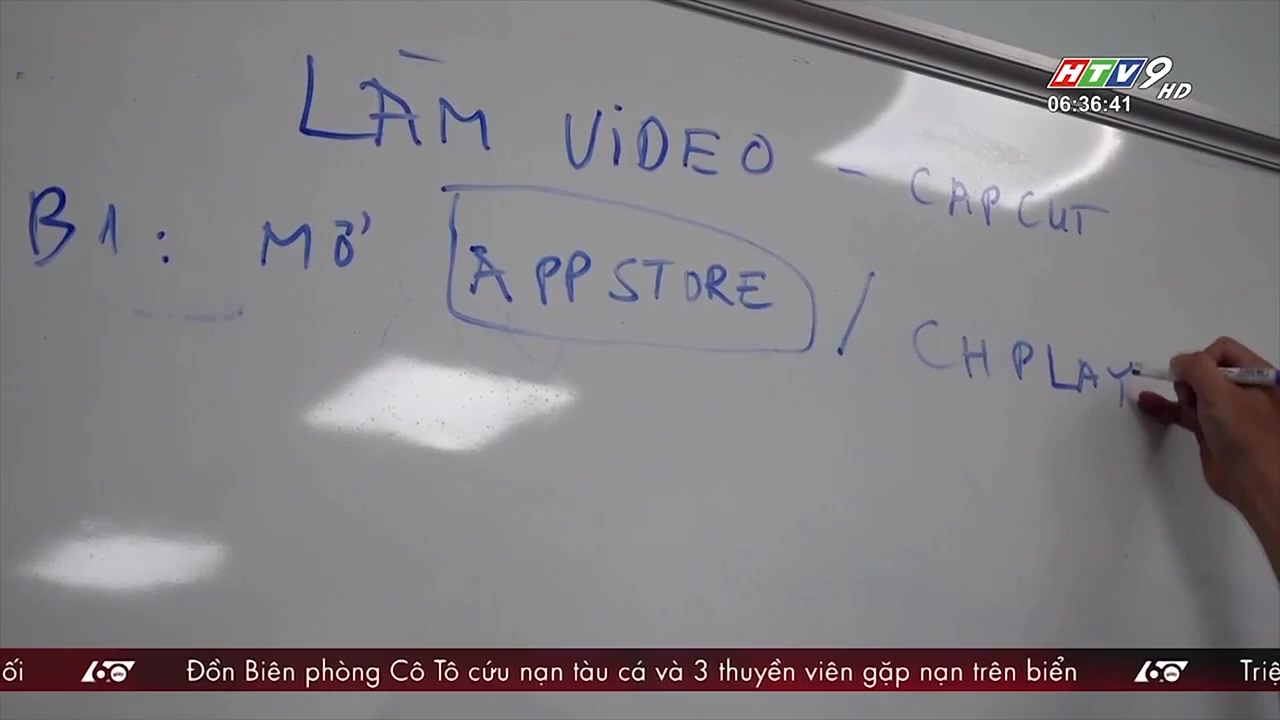 HTV9 HD
06:36:41
LÀM VIDEO - CAPCUT
B1: MỞ APPSTORE / CHPLAY
ối 60 giây Đồn Biên phòng Cô Tô cứu nạn tàu cá và 3 thuyền viên gặp nạn trên biển 60 giây Triệ